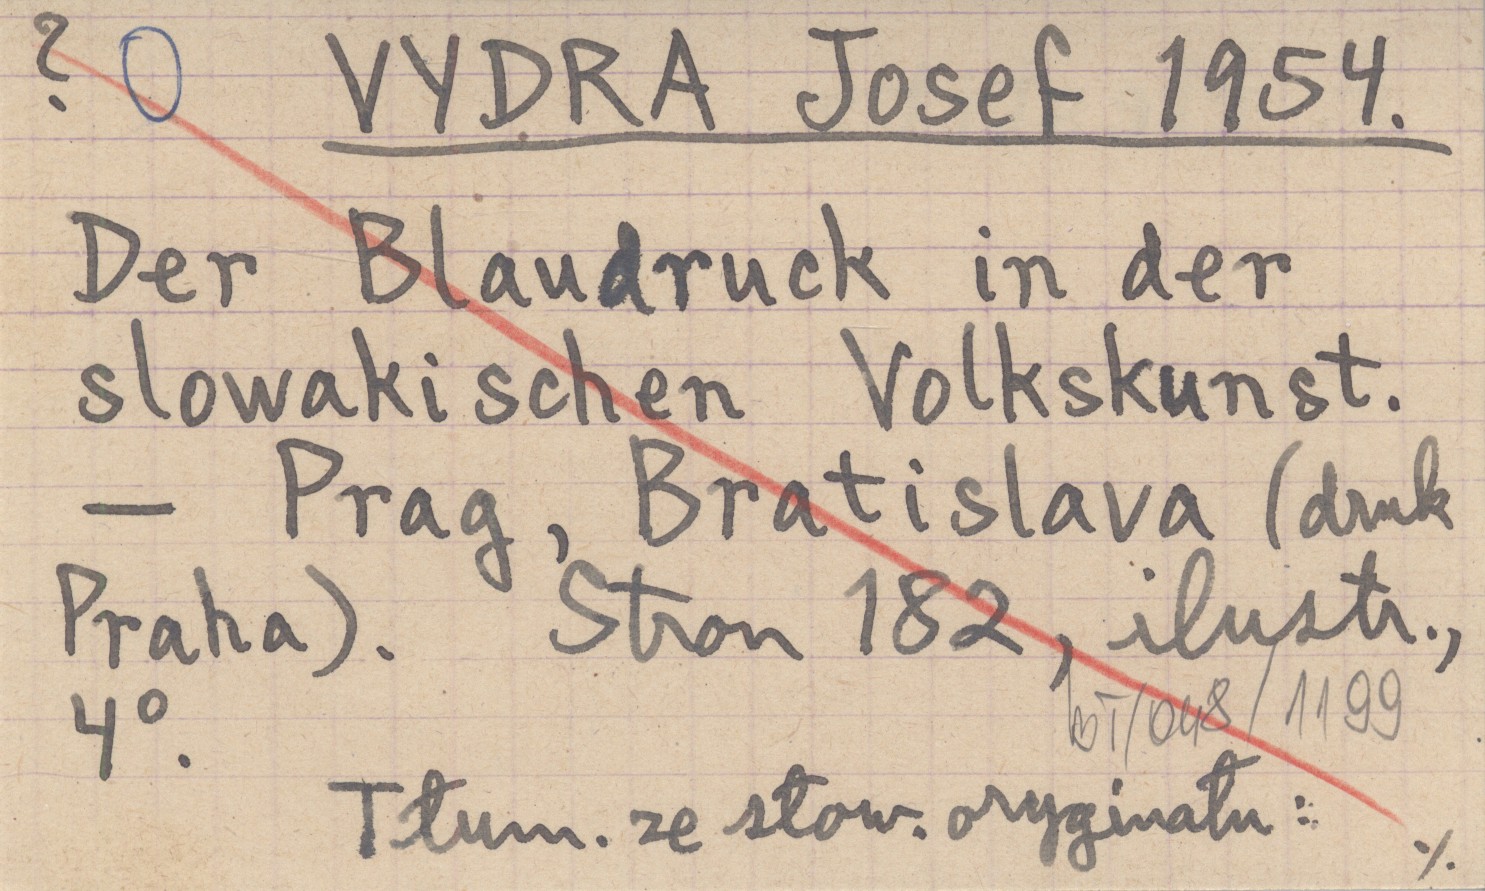 ? VYDRA Josef 1954.
Der Blaudruck in der
slowakischen Volkskunst.
— Prag, Bratislava (druk
Praha). Stron 182, ilustr.,
4º.
/048/1199
Tłum. ze słow. oryginału:
./.